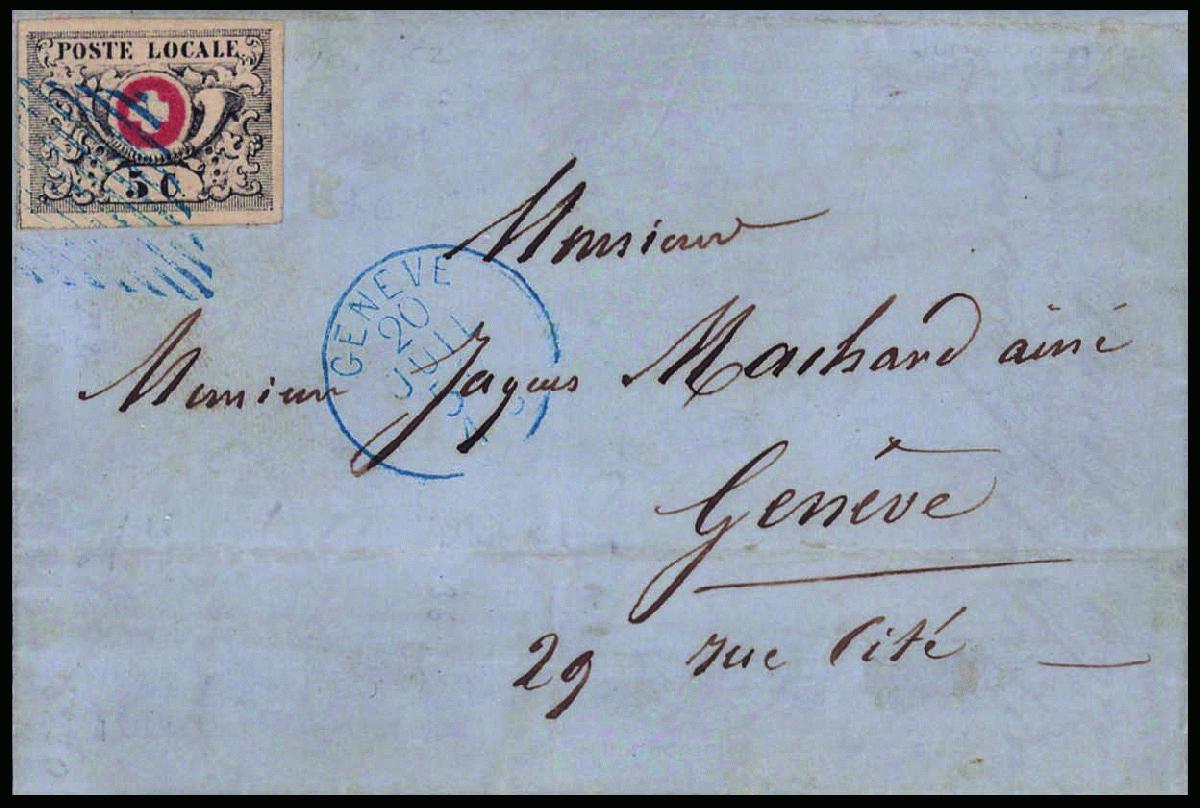 POSTE LOCALE
5 C.
GENEVE
20
JUIL
Monsieur
Monsieur Jaques Machard ainé
Genève
29 rue Cité